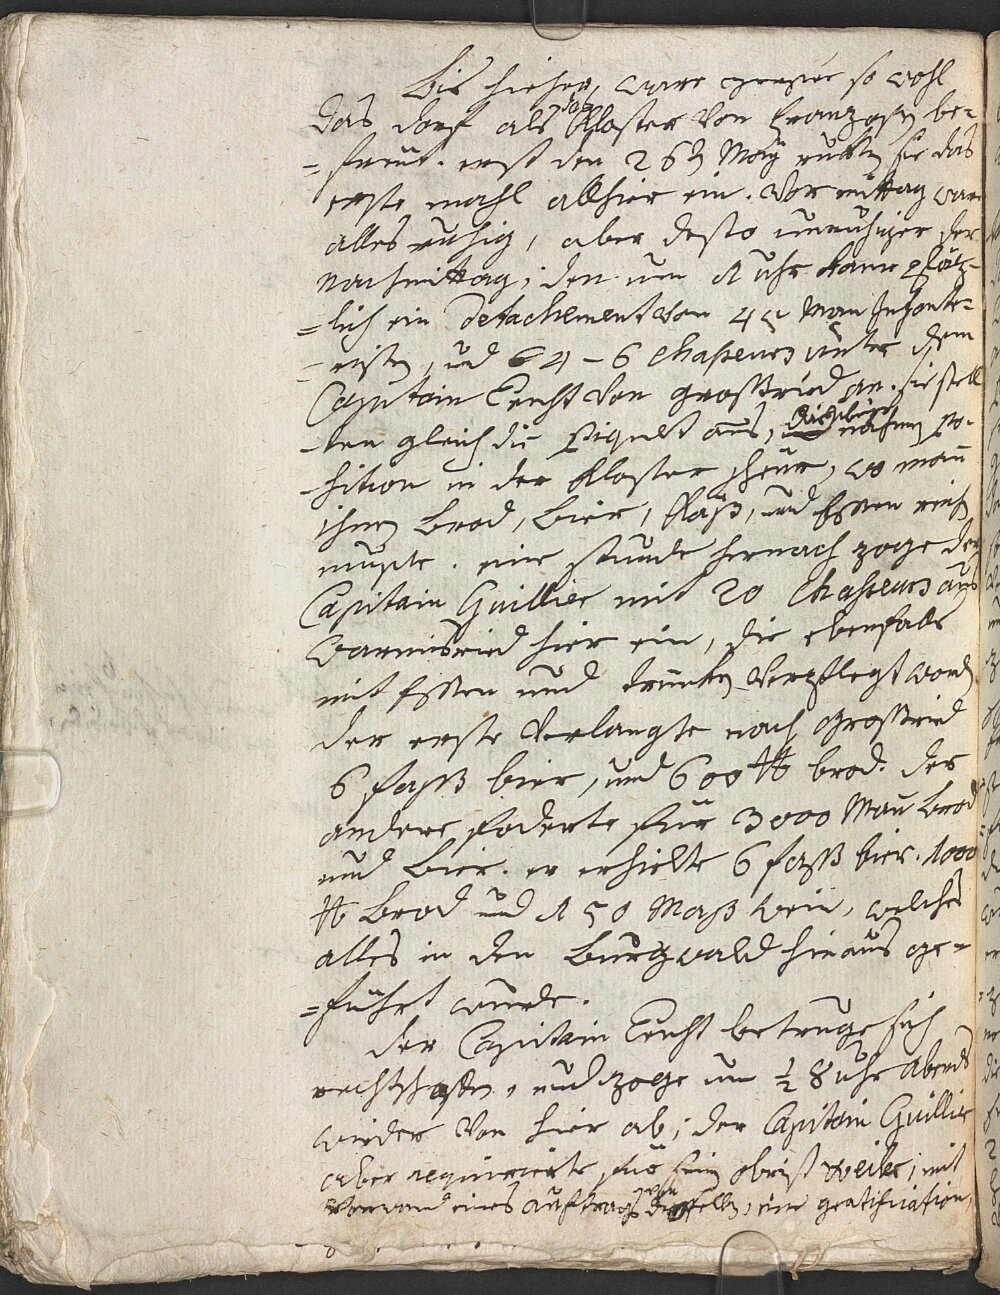 Bis hieher, ware gegene so wohl
das dorf als das Kloster von Franzosen be-
=freüt. erst den 26ten Maÿ rukten sie das
erste mahl allhier ein. Vormittag war
alles ruhig, aber desto unruhiger der
nachmittag; den um 1 uhr kame plötz-
=lich ein Detachement von 45 Man Infante-
-risten, und 4-6 Chasseurs unter dem
Capitain Lucht von grossried an. sie stell
-ten gleich die Piquet aus, nahmen Po-
-sition in der Kloster scheür, wo man
ihnen Brod, Bier, Käß, und Essen reichen
muste. eine stunde hernach zoge der
Capitain Guillier mit 20 Chasseurs aus
Warmisried hier ein, die ebenfalls
mit Essen und trunken verpflegt worden
der erste Verlangte nach Grossried
6 fasß bier, und 600 ℔ brod. der
andere foderte für 3000 Man Brod
und Bier. er erhielte 6 fasß bier. 1000
℔ Brod und 150 Maß wein, welches
alles in den Burgwald hinaus ge-
=führt wurde.
der Capitain Lucht betruge sich
rechtschaffen, und zoge um ½ 8 uhr Abends
wieder von hier ab; der Capitain Guillier
aber requirierte für sein obrist weiler, mit
Vorwand eines auftrags von desselben, eine gratification,